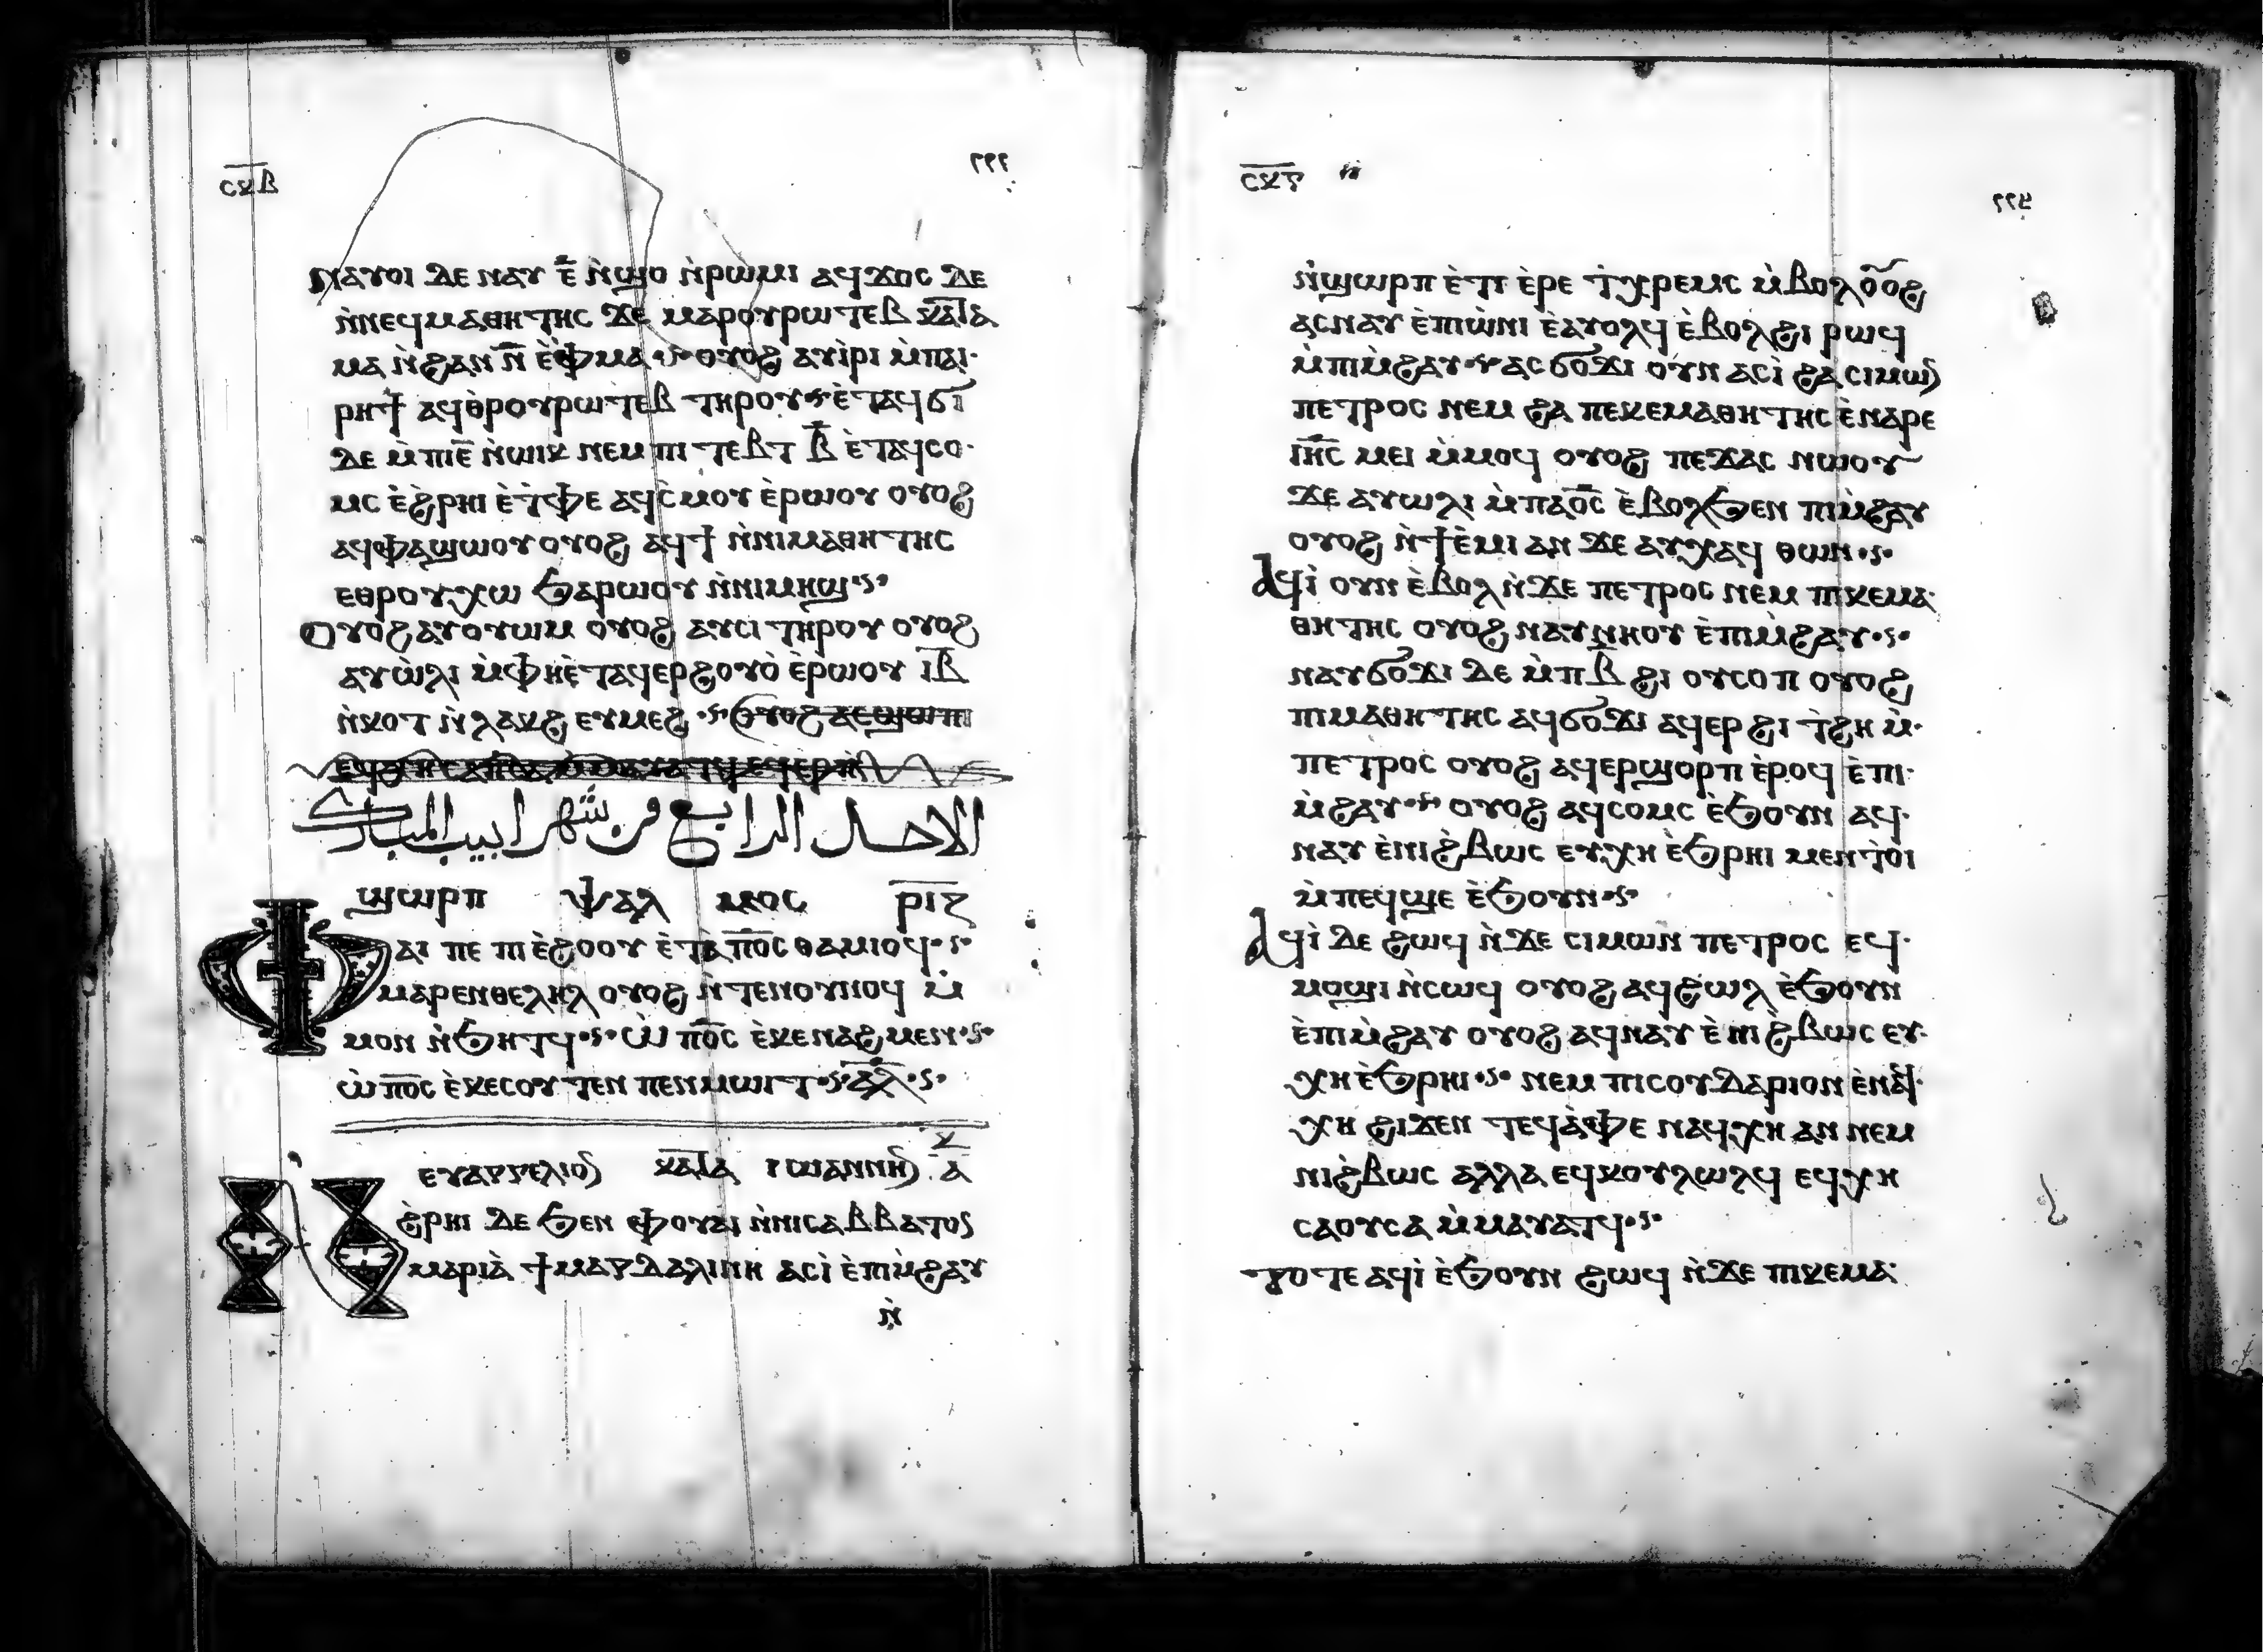 ⲥⲕⲃ ٢٢٢
ⲛⲁⲩⲟⲓ ⲇⲉ ⲛⲁⲩ ⲉ̅ ⲛ̀ϣⲟ ⲛ̀ⲣⲱⲙⲓ ⲁϥϫⲟⲥ ⲇⲉ
ⲛ̀ⲛⲉϥⲙⲁⲑⲏⲧⲏⲥ ϫⲉ ⲙⲁⲣⲟⲩⲣⲱⲧⲉⲃ ⲕⲁⲧⲁ
ⲙⲁ ⲛ̀ϩⲁⲛ ⲛ̅ ⲉ̀ⲫⲙⲁ ⲟⲩⲟϩ ⲁⲩⲓ̀ⲣⲓ ⲙ̀ⲡⲁⲓ
ⲣⲏϯ ⲁϥⲑⲣⲟⲩⲣⲱⲧⲉⲃ ⲧⲏⲣⲟⲩ ⲉ̀ⲧⲁϥϭⲓ
ⲇⲉ ⲙ̀ⲡⲓⲉ̅ ⲛ̀ⲱⲓⲕ ⲛⲉⲙ ⲡⲓ ⲧⲉⲃⲧ ⲃ̅ ⲉ̀ⲧⲁϥⲥⲟ
ⲙⲥ ⲉ̀ϩ̀ⲣⲏⲓ ⲉ̀ⲧ̀ⲫⲉ ⲁϥⲥ̀ⲙⲟⲩ ⲉ̀ⲣⲱⲟⲩ ⲟⲩⲟϩ
ⲁϥⲫⲁϣⲱⲟⲩ ⲟⲩⲟϩ ⲁϥϯ ⲛ̀ⲛⲓⲙⲁⲑⲏⲧⲏⲥ
ⲉⲑⲣⲟⲩⲭⲱ ϧⲁⲣⲱⲟⲩ ⲛ̀ⲛⲓⲙⲏϣ
ⲟⲩⲟϩ ⲁⲩⲟⲩⲱⲙ ⲟⲩⲟϩ ⲁⲩⲥⲓ ⲧⲏⲣⲟⲩ ⲟⲩⲟϩ
ⲁⲩⲱ̀ⲗⲓ ⲙ̀ⲫⲏⲉ̀ⲧⲁϥⲉⲣϩⲟⲩⲟ̀ ⲉ̀ⲣⲱⲟⲩ ⲓ̅ⲃ̅
ⲛ̀ⲕⲟⲧ ⲛ̀ⲗⲁⲕϩ ⲉⲩⲙⲉϩ ⲟⲩⲟϩ ⲁⲥϣⲱⲡⲓ
الاحد الرابع من شهر ابيب المبارك
ϣⲱⲣⲡ ⲯⲁⲗⲙⲟⲥ ⲣ̅ⲓ̅ⲍ̅
ⲫⲁⲓ ⲡⲉ ⲡⲓⲉ̀ϩⲟⲟⲩ ⲉ̀ⲧⲁ̀ⲡⲟ̅ⲥ̅ ⲑⲁⲙⲓⲟϥ
ⲙⲁⲣⲉⲛⲑⲉⲗⲏⲗ ⲟⲩⲟϩ ⲛ̀ⲧⲉⲛⲟⲩⲛⲟϥ ⲙ̀
ⲙⲟⲛ ⲛ̀ϧⲏⲧϥ ⲱ̀ ⲡⲟ̅ⲥ̅ ⲉ̀ⲕⲉⲛⲁϩⲙⲉⲛ
ⲱ̀ ⲡⲟ̅ⲥ̅ ⲉ̀ⲕⲉⲥⲟⲩⲧⲉⲛ ⲡⲉⲛⲙⲱⲓⲧ ⲁ̅ⲗ̅
ⲉⲩⲁⲅⲅⲉⲗⲓⲟⲛ ⲕⲁⲧⲁ ⲓⲱⲁⲛⲛⲏⲛ ⲕ̅ ⲁ̅
ⲛ̀ϩ̀ⲣⲏⲓ ⲇⲉ ϧⲉⲛ ⲫⲟⲩⲁⲓ ⲛ̀ⲛⲓⲥⲁⲃⲃⲁⲧⲟⲥ
ⲙⲁⲣⲓⲁ̀ ϯⲙⲁⲅⲇⲁⲗⲓⲛⲏ ⲁⲥⲓ̀ ⲉ̀ⲡⲓⲙ̀ϩⲁⲩ
ⲛ̀
ⲥⲕⲅ ٢٢٣
ⲛ̀ϣⲱⲣⲡ ⲉ̀ⲧⲓ ⲉ̀ⲣⲉ ⲧ̀ⲭⲣⲉⲙⲥ ⲙ̀ⲃⲟⲗ ⲟⲟϩ
ⲁⲥⲛⲁⲩ ⲉ̀ⲡⲓⲱ̀ⲛⲓ ⲉ̀ⲁⲩⲟⲗϥ ⲉ̀ⲃⲟⲗϩⲓ ⲣⲱϥ
ⲙ̀ⲡⲓⲙ̀ϩⲁⲩ ⲁⲥϭⲟϫⲓ ⲟⲩⲛ ⲁⲥⲓ̀ ϩⲁ ⲥⲓⲙⲱⲛ
ⲡⲉⲧⲣⲟⲥ ⲛⲉⲙ ϩⲁ ⲡⲉⲕⲉⲙⲁⲑⲏⲧⲏⲥ ⲉ̀ⲛⲁⲣⲉ
ⲓ̅ⲏ̅ⲥ̅ ⲙⲉⲓ ⲙ̀ⲙⲟϥ ⲟⲩⲟϩ ⲡⲉϫⲁⲥ ⲛⲱⲟⲩ
ϫⲉ ⲁⲩⲱⲗⲓ ⲙ̀ⲡⲁⲟ̅ⲥ̅ ⲉ̀ⲃⲟⲗϧⲉⲛ ⲡⲓⲙ̀ϩⲁⲩ
ⲟⲩⲟϩ ⲛ̀ϯⲉ̀ⲙⲓ ⲁⲛ ϫⲉ ⲁⲩⲭⲁϥ ⲑⲱⲛ
ⲁϥⲓ̀ ⲟⲩⲛ ⲉ̀ⲃⲟⲗ ⲛ̀ϫⲉ ⲡⲉⲧⲣⲟⲥ ⲛⲉⲙ ⲡⲓⲕⲉⲙⲁ
ⲑⲏⲧⲏⲥ ⲟⲩⲟϩ ⲛⲁⲩⲛⲏⲟⲩ ⲉ̀ⲡⲓⲙ̀ϩⲁⲩ
ⲛⲁⲩϭⲟϫⲓ ⲇⲉ ⲙ̀ⲡⲃ̅ ϩⲓ ⲟⲩⲥⲟⲡ ⲟⲩⲟϩ
ⲡⲓⲙⲁⲑⲏⲧⲏⲥ ⲁϥϭⲟϫⲓ ⲁϥⲉⲣ ϩⲓ ⲧ̀ϩⲏ ⲙ̀
ⲡⲉⲧⲣⲟⲥ ⲟⲩⲟϩ ⲁϥⲉⲣϣⲟⲣⲡ ⲉ̀ⲣⲟϥ ⲉ̀ⲡⲓ
ⲙ̀ϩⲁⲩ ⲟⲩⲟϩ ⲁϥⲥⲟⲙⲥ ⲉ̀ϧⲟⲩⲛ ⲁϥ
ⲛⲁⲩ ⲉ̀ⲛⲓϩ̀ⲃⲱⲥ ⲉⲩⲭⲏ ⲉ̀ϧⲣⲏⲓ ⲙⲉⲛⲧⲟⲓ
ⲙ̀ⲡⲉϥϣⲉ ⲉ̀ϧⲟⲩⲛ
ⲁϥⲓ̀ ⲇⲉ ϩⲱϥ ⲛ̀ϫⲉ ⲥⲓⲙⲱⲛ ⲡⲉⲧⲣⲟⲥ ⲉϥ
ⲙⲟϣⲓ ⲛ̀ⲥⲱϥ ⲟⲩⲟϩ ⲁϥϩⲱⲗ ⲉ̀ϧⲟⲩⲛ
ⲉ̀ⲡⲓⲙ̀ϩⲁⲩ ⲟⲩⲟϩ ⲁϥⲛⲁⲩ ⲉ̀ⲛⲓϩ̀ⲃⲱⲥ ⲉⲩ
ⲭⲏ ⲉ̀ϧⲣⲏⲓ ⲛⲉⲙ ⲡⲓⲥⲟⲩⲇⲁⲣⲓⲟⲛ ⲉ̀ⲛⲁϥ
ⲭⲏ ϩⲓϫⲉⲛ ⲧⲉϥⲁ̀ⲫⲉ ⲛⲁϥⲭⲏ ⲁⲛ ⲛⲉⲙ
ⲛⲓϩ̀ⲃⲱⲥ ⲁⲗⲗⲁ ⲉϥⲕⲟⲩⲗⲱⲗϥ ⲉϥⲭⲏ
ⲥⲁⲟⲩⲥⲁ ⲙ̀ⲙⲁⲩⲁⲧϥ
ⲧⲟⲧⲉ ⲁϥⲓ̀ ⲉ̀ϧⲟⲩⲛ ϩⲱϥ ⲛ̀ϫⲉ ⲡⲓⲕⲉⲙⲁ